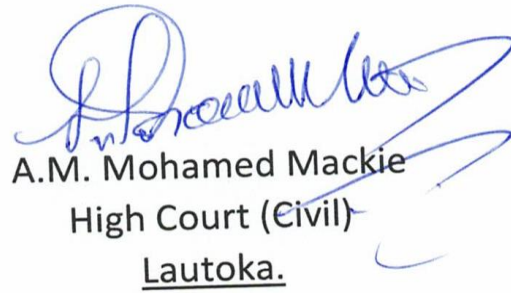 A.M. Mohamed Mackie
High Court (Civil)
Lautoka.